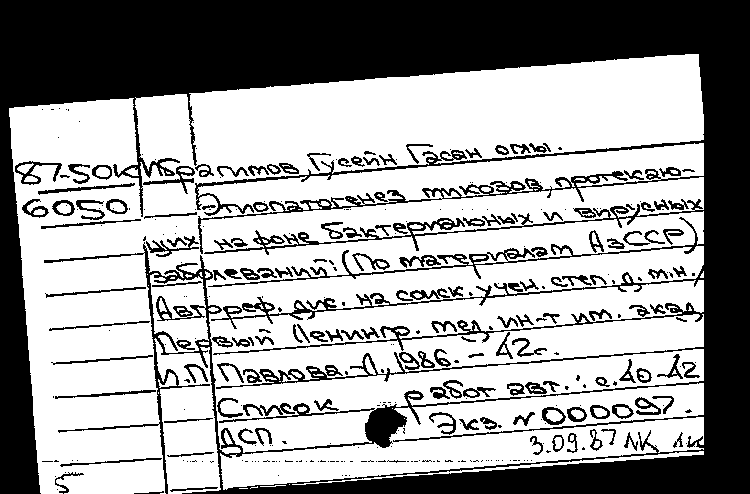 87-50К Ибрагимов, Гусейн Гасан оглы.
6050 Этиопатогенез микозов, протекаю-
щих на фоне бактериальных и вирусных
заболеваний: (По материалам АзССР)
Автореф. дис. на соиск. учен. степ. д. м. н. /
Первый Ленингр. мед. ин-т им. акад.
И.П. Павлова. -Л., 1986. - 42с.
Список работ авт.: с. 40-42
ДСП. Экз. N 000097.
3.09.87 NK
5